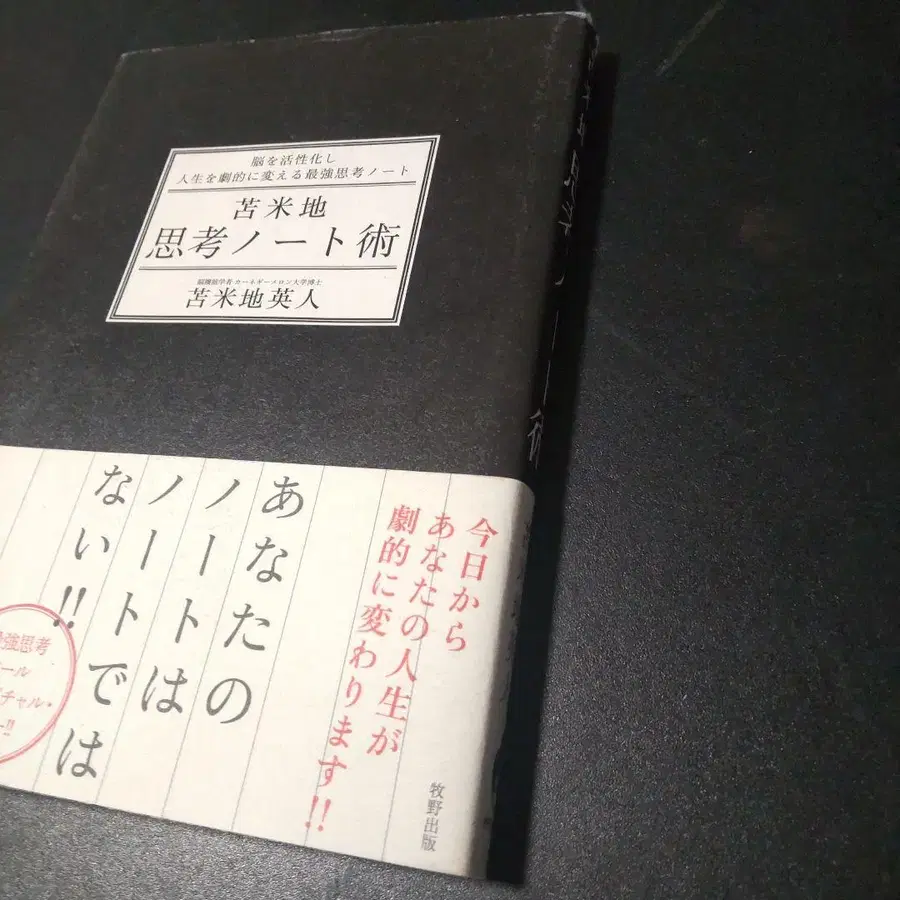 脳を活性化し
人生を劇的に変える最強思考ノート
苫米地
思考ノート術
脳機能学者・カーネギーメロン大学博士
苫米地英人
今日から
あなたの人生が
劇的に変わります!!
あなたの
ノートは
ノートでは
ない!!
強思考
ール
チャル・
!!
牧野出版